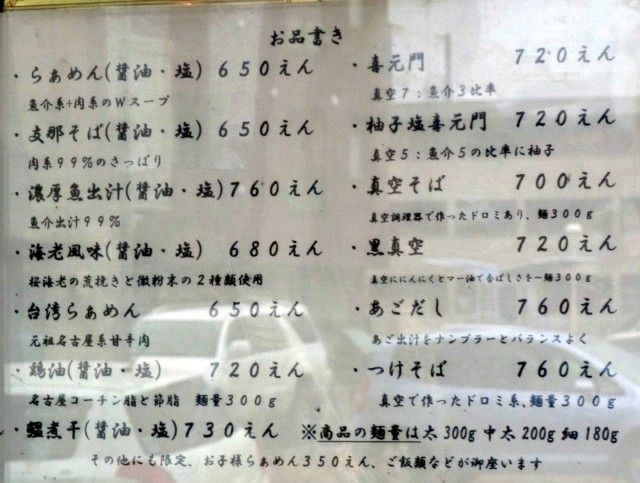 お品書き
・らぁめん(醤油・塩) 650えん
魚介系+肉系のWスープ
・支那そば(醤油・塩) 650えん
肉系99%のさっぱり
・濃厚魚出汁(醤油・塩) 760えん
魚介出汁99%
・海老風味(醤油・塩) 680えん
桜海老の荒挽きと微粉末の2種類使用
・台湾らぁめん 650えん
元祖名古屋系甘辛肉
・鶏油(醤油・塩) 720えん
名古屋コーチン脂と節脂 麺量300g
・鰮煮干(醤油・塩) 730えん
・喜元門 720えん
真空7:魚介3比率
・柚子塩喜元門 720えん
真空5:魚介5の比率に柚子
・真空そば 700えん
真空調理器で作ったドロミあり、麺300g
・黒真空 720えん
真空ににんにくとマー油で香ばしさを~麺300g
・あごだし 760えん
あご出汁をナンプラーとバランスよく
・つけそば 760えん
真空で作ったドロミ系、麺量300g
※商品の麺量は太300g 中太200g 細180g
その他にも限定、お子様らぁめん350えん、ご飯類などが御座います